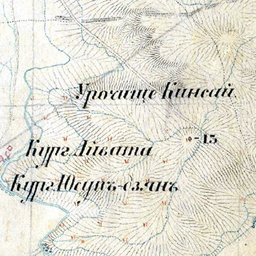 Урочище Кинсай
-15
Кург. Айвата
Кург. Юсупъ-Озянъ